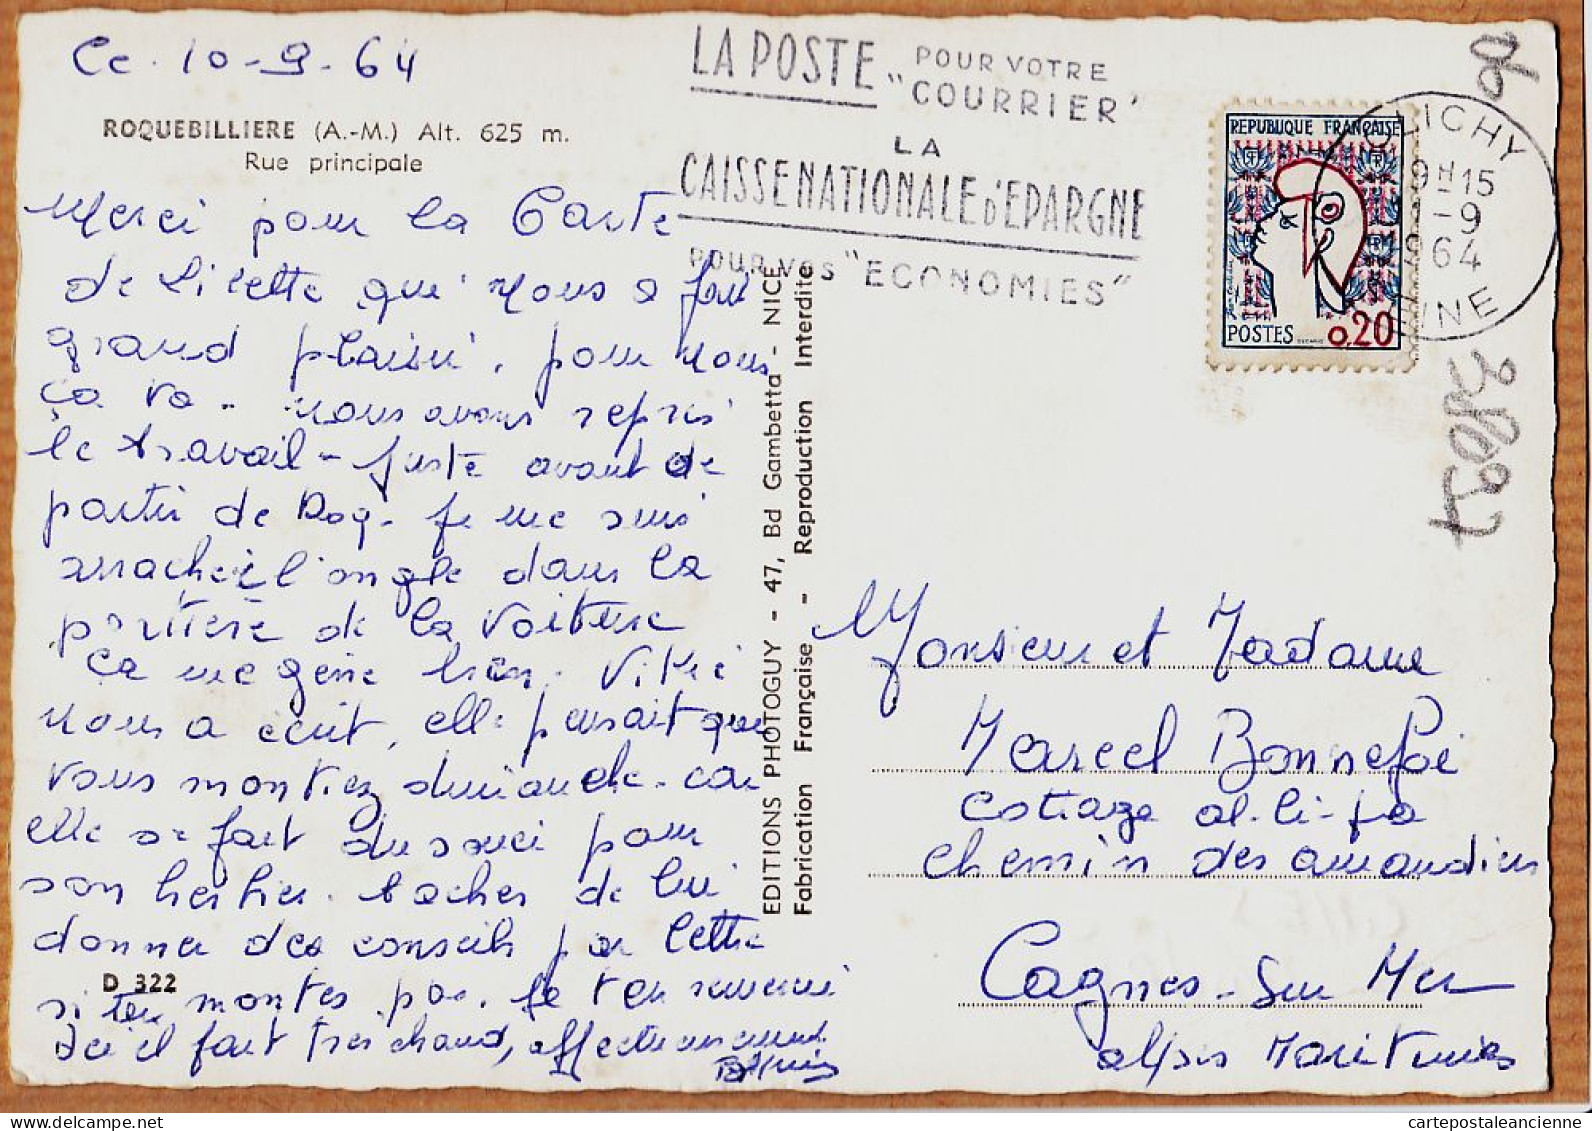 Ce 10-9-64
ROQUEBILLIERE (A.-M.) Alt. 625 m.
Rue principale
Merci pour la Carte
de Licette qui nous a fait
grand plaisir, pour nous
ça va - nous avons repris
le travail - juste avant de
partir de Roq. je me suis
arracher l'ongle dans la
portière de la voiture
ça me gêne bien.
nous a écrit, elle pensait que
vous montiez dimanche. car
elle se fait du souci pour
son herbier. tacher de lui
donner des conseils par lettre
D 322
si tu montes pas. je t'en remercie
Ici il fait très chaud, affectueusement
EDITIONS PHOTOGUY - 47, Bd Gambetta - NICE
Fabrication Française - Reproduction Interdite
LA POSTE POUR VOTRE
"COURRIER"
LA
CAISSE NATIONALE d'EPARGNE
POUR VOS "ECONOMIES"
REPUBLIQUE FRANÇAISE
POSTES 0,20
CLICHY
9H15
-9
1964
SEINE
38097
Monsieur et Madame
Marcel Bonnefoi
Cottage al-li-fa
chemin des amandiers
Cagnes-Sur Mer
alpes Maritimes
cartepostaleancienne